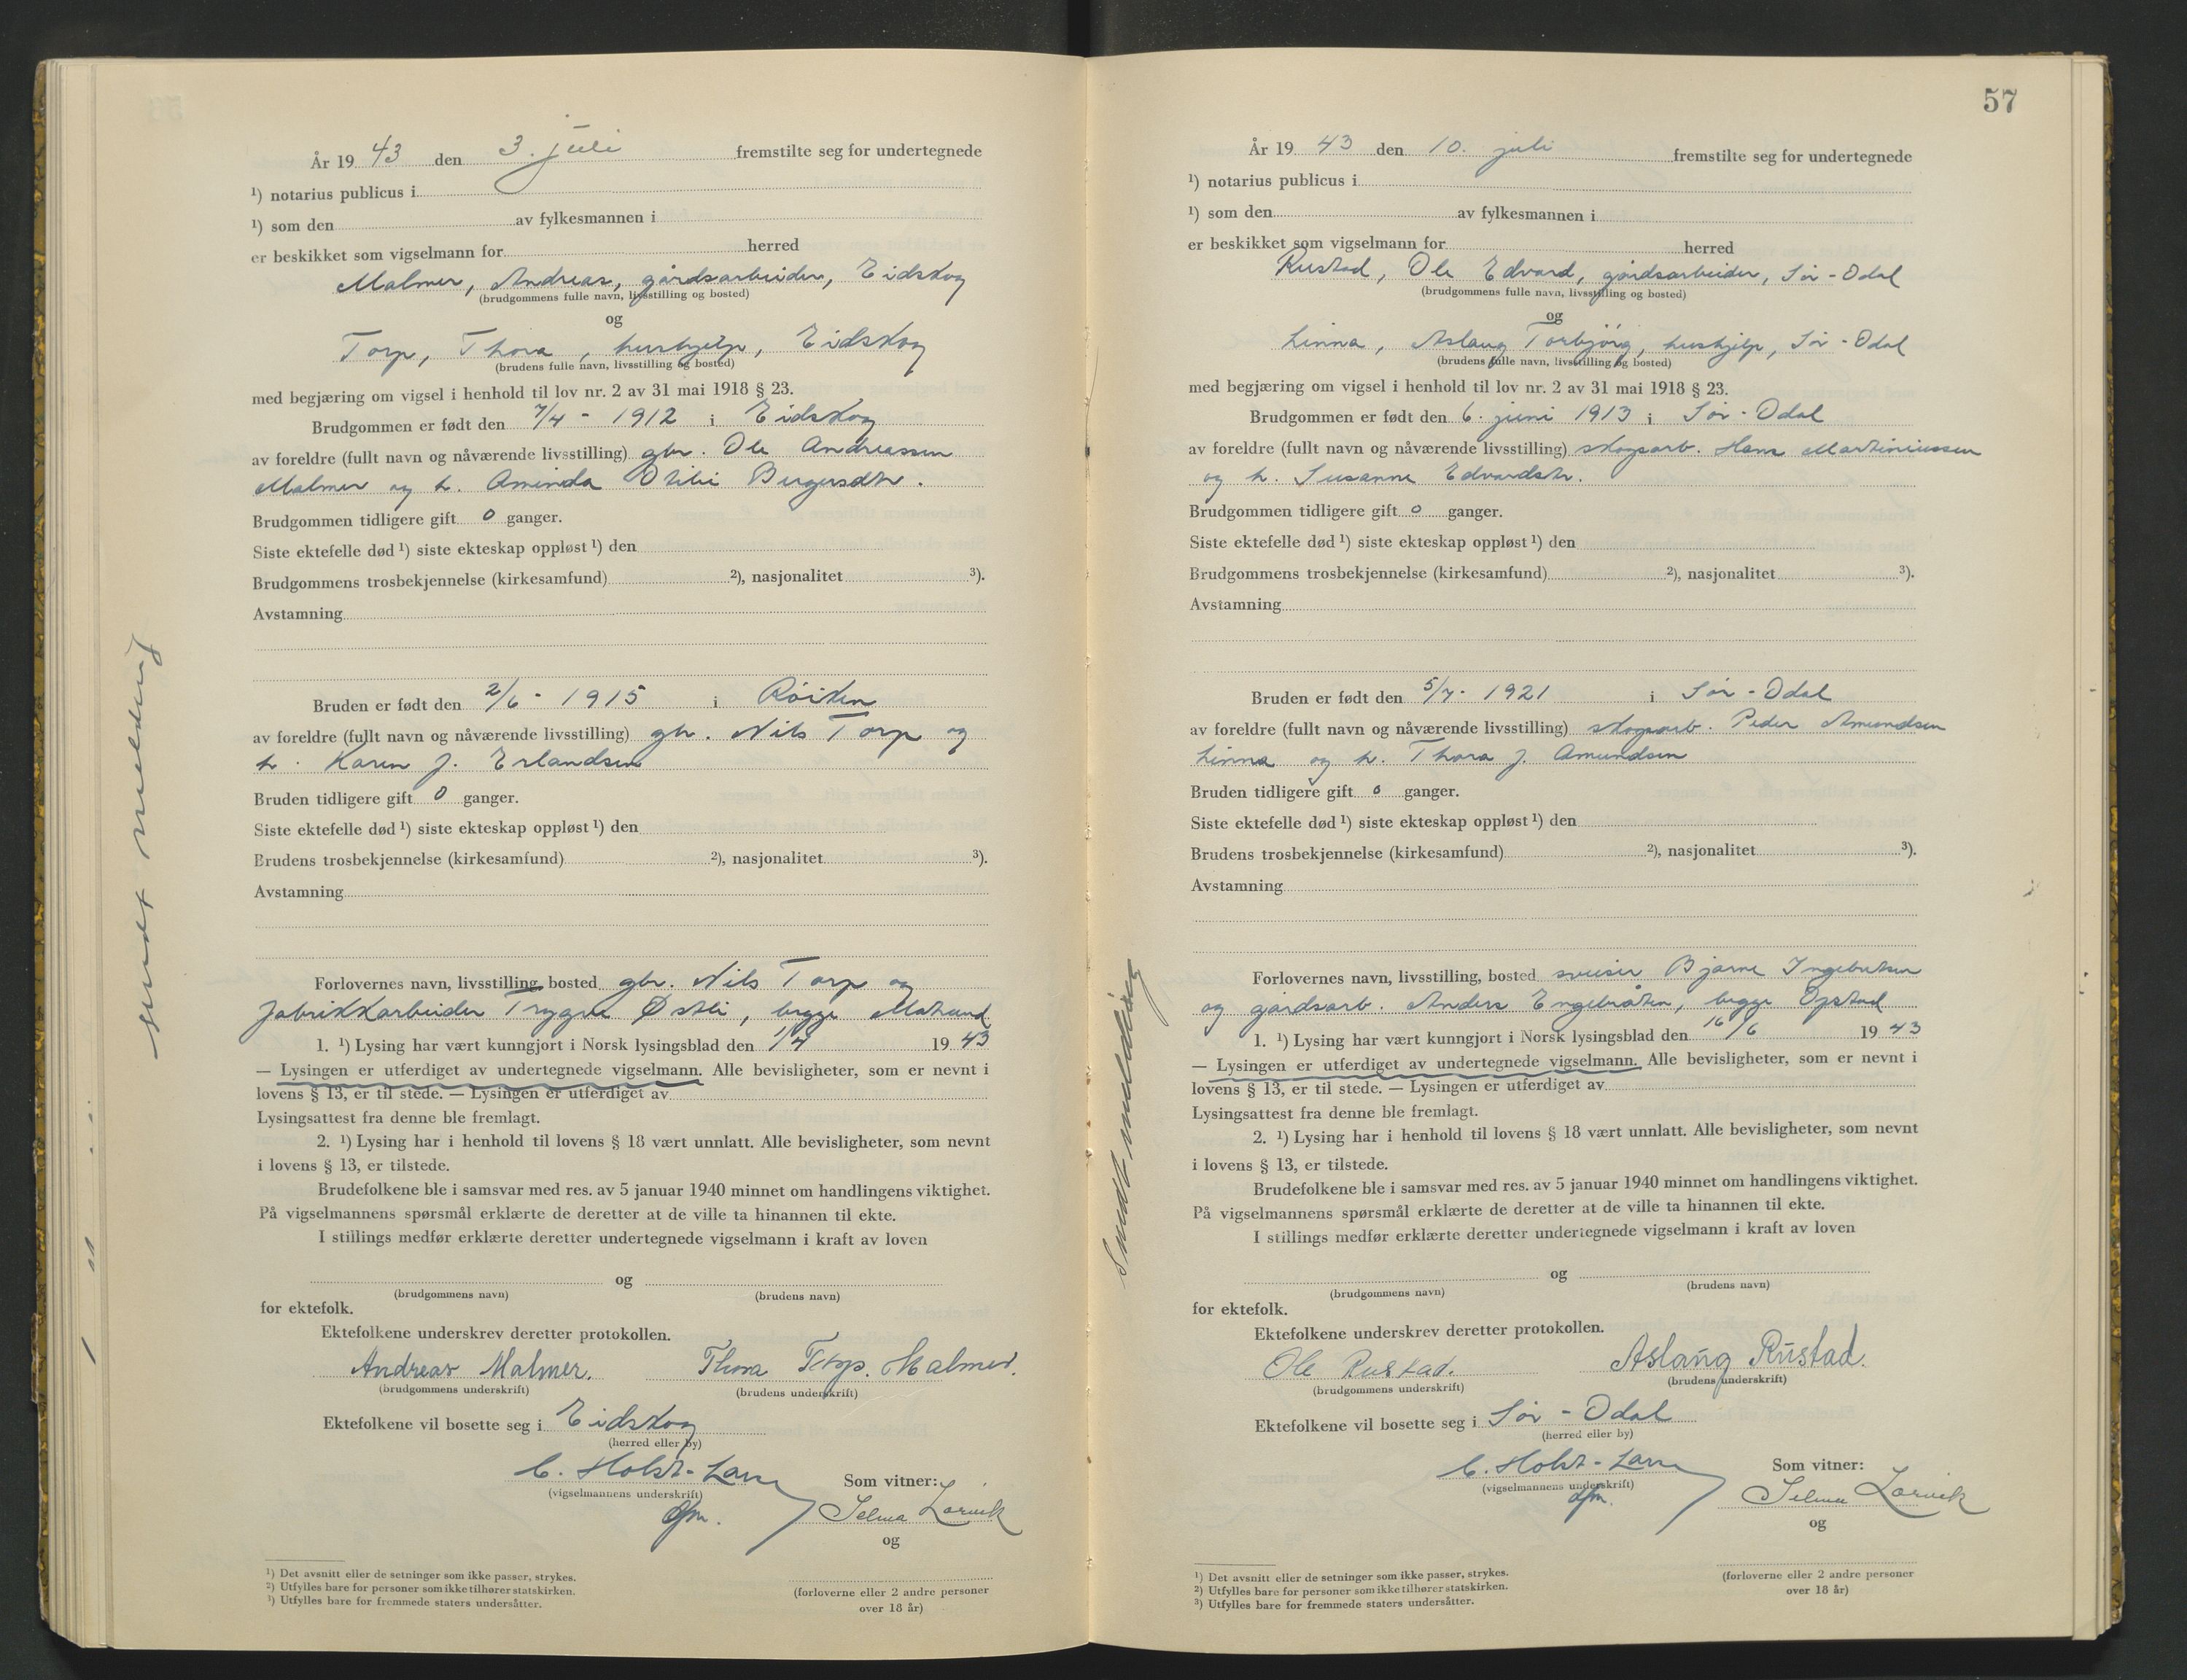 År 19 43 den 3. juli fremstilte seg for undertegnede
¹) notarius publicus i
¹) som den av fylkesmannen i
er beskikket som vigselmann for herred
Malmer, Andreas, gårdsarbeider, Eidskog
(brudgommens fulle navn, livsstilling og bosted)
og
Torp, Thora, hushjelp, Eidskog
(brudens fulle navn, livsstilling og bosted)
med begjæring om vigsel i henhold til lov nr. 2 av 31 mai 1918 § 23.
Brudgommen er født den 7/4 - 1912 i Eidskog
av foreldre (fullt navn og nåværende livsstilling) gbr. Ole Andreassen
Malmer og h. Aminda Otilie Bergersdtr.
Brudgommen tidligere gift 0 ganger.
Siste ektefelle død ¹) siste ekteskap oppløst ¹) den
Brudgommens trosbekjennelse (kirkesamfund) ²), nasjonalitet ³).
Avstamning
Bruden er født den 2/6 - 1915 i Röiken
av foreldre (fullt navn og nåværende livsstilling) gbr. Nils Torp og
h. Karen J. Erlandsen
Bruden tidligere gift 0 ganger.
Siste ektefelle død ¹) siste ekteskap oppløst ¹) den
Brudens trosbekjennelse (kirkesamfund) ²), nasjonalitet ³).
Avstamning
Forlovernes navn, livsstilling, bosted gbr. Nils Torp og
fabrikkarbeider Trygve Østli, begge Matrand
1. ¹) Lysing har vært kunngjort i Norsk lysingsblad den 1/4 19 43
— Lysingen er utferdiget av undertegnede vigselmann. Alle bevisligheter, som er nevnt i
lovens § 13, er til stede. — Lysingen er utferdiget av
Lysingsattest fra denne ble fremlagt.
2. ¹) Lysing har i henhold til lovens § 18 vært unnlatt. Alle bevisligheter, som nevnt
i lovens § 13, er tilstede.
Brudefolkene ble i samsvar med res. av 5 januar 1940 minnet om handlingens viktighet.
På vigselmannens spørsmål erklærte de deretter at de ville ta hinannen til ekte.
I stillings medfør erklærte deretter undertegnede vigselmann i kraft av loven
og
(brudgommens navn) (brudens navn)
for ektefolk.
Ektefolkene underskrev deretter protokollen.
Andreas Malmer. Thora Torp. Malmer.
(brudgommens underskrift) (brudens underskrift)
Ektefolkene vil bosette seg i Eidskog
(herred eller by)
C. Holst-Larsen Som vitner:
(vigselmannens underskrift)
dfm. Selma Lorvik
og
¹) Det avsnitt eller de setninger som ikke passer, strykes.
²) Utfylles bare for personer som ikke tilhører statskirken.
³) Utfylles bare for fremmede staters undersåtter.
(forloverne eller 2 andre personer
over 18 år)
sendt melding
57
År 19 43 den 10. juli fremstilte seg for undertegnede
¹) notarius publicus i
¹) som den av fylkesmannen i
er beskikket som vigselmann for herred
Rustad, Ole Edvard, gårdsarbeider, Sör-Odal
(brudgommens fulle navn, livsstilling og bosted)
og
Linna, Aslaug Torbjörg, hushjelp, Sör-Odal
(brudens fulle navn, livsstilling og bosted)
med begjæring om vigsel i henhold til lov nr. 2 av 31 mai 1918 § 23.
Brudgommen er født den 6. juni 1913 i Sör-Odal
av foreldre (fullt navn og nåværende livsstilling) skogsarb. Hans Martiniussen
og h. Susanne Edvardsdtr.
Brudgommen tidligere gift 0 ganger.
Siste ektefelle død ¹) siste ekteskap oppløst ¹) den
Brudgommens trosbekjennelse (kirkesamfund) ²), nasjonalitet ³).
Avstamning
Bruden er født den 5/7 - 1921 i Sör-Odal
av foreldre (fullt navn og nåværende livsstilling) skogsarb. Peder Amundsen
Linna og h. Thora J. Amundsen
Bruden tidligere gift 0 ganger.
Siste ektefelle død ¹) siste ekteskap oppløst ¹) den
Brudens trosbekjennelse (kirkesamfund) ²), nasjonalitet ³).
Avstamning
Forlovernes navn, livsstilling, bosted sveiser Bjarne Ingebretsen
og gårdsarb. Anders Engebråten, begge Opstad
1. ¹) Lysing har vært kunngjort i Norsk lysingsblad den 16/6 19 43
— Lysingen er utferdiget av undertegnede vigselmann. Alle bevisligheter, som er nevnt i
lovens § 13, er til stede. — Lysingen er utferdiget av
Lysingsattest fra denne ble fremlagt.
2. ¹) Lysing har i henhold til lovens § 18 vært unnlatt. Alle bevisligheter, som nevnt
i lovens § 13, er tilstede.
Brudefolkene ble i samsvar med res. av 5 januar 1940 minnet om handlingens viktighet.
På vigselmannens spørsmål erklærte de deretter at de ville ta hinannen til ekte.
I stillings medfør erklærte deretter undertegnede vigselmann i kraft av loven
og
(brudgommens navn) (brudens navn)
for ektefolk.
Ektefolkene underskrev deretter protokollen.
Ole Rustad. Aslaug Rustad.
(brudgommens underskrift) (brudens underskrift)
Ektefolkene vil bosette seg i Sör-Odal
(herred eller by)
C. Holst-Larsen Som vitner:
(vigselmannens underskrift)
dfm. Selma Lorvik
og
¹) Det avsnitt eller de setninger som ikke passer, strykes.
²) Utfylles bare for personer som ikke tilhører statskirken.
³) Utfylles bare for fremmede staters undersåtter.
(forloverne eller 2 andre personer
over 18 år)
Sendt melding